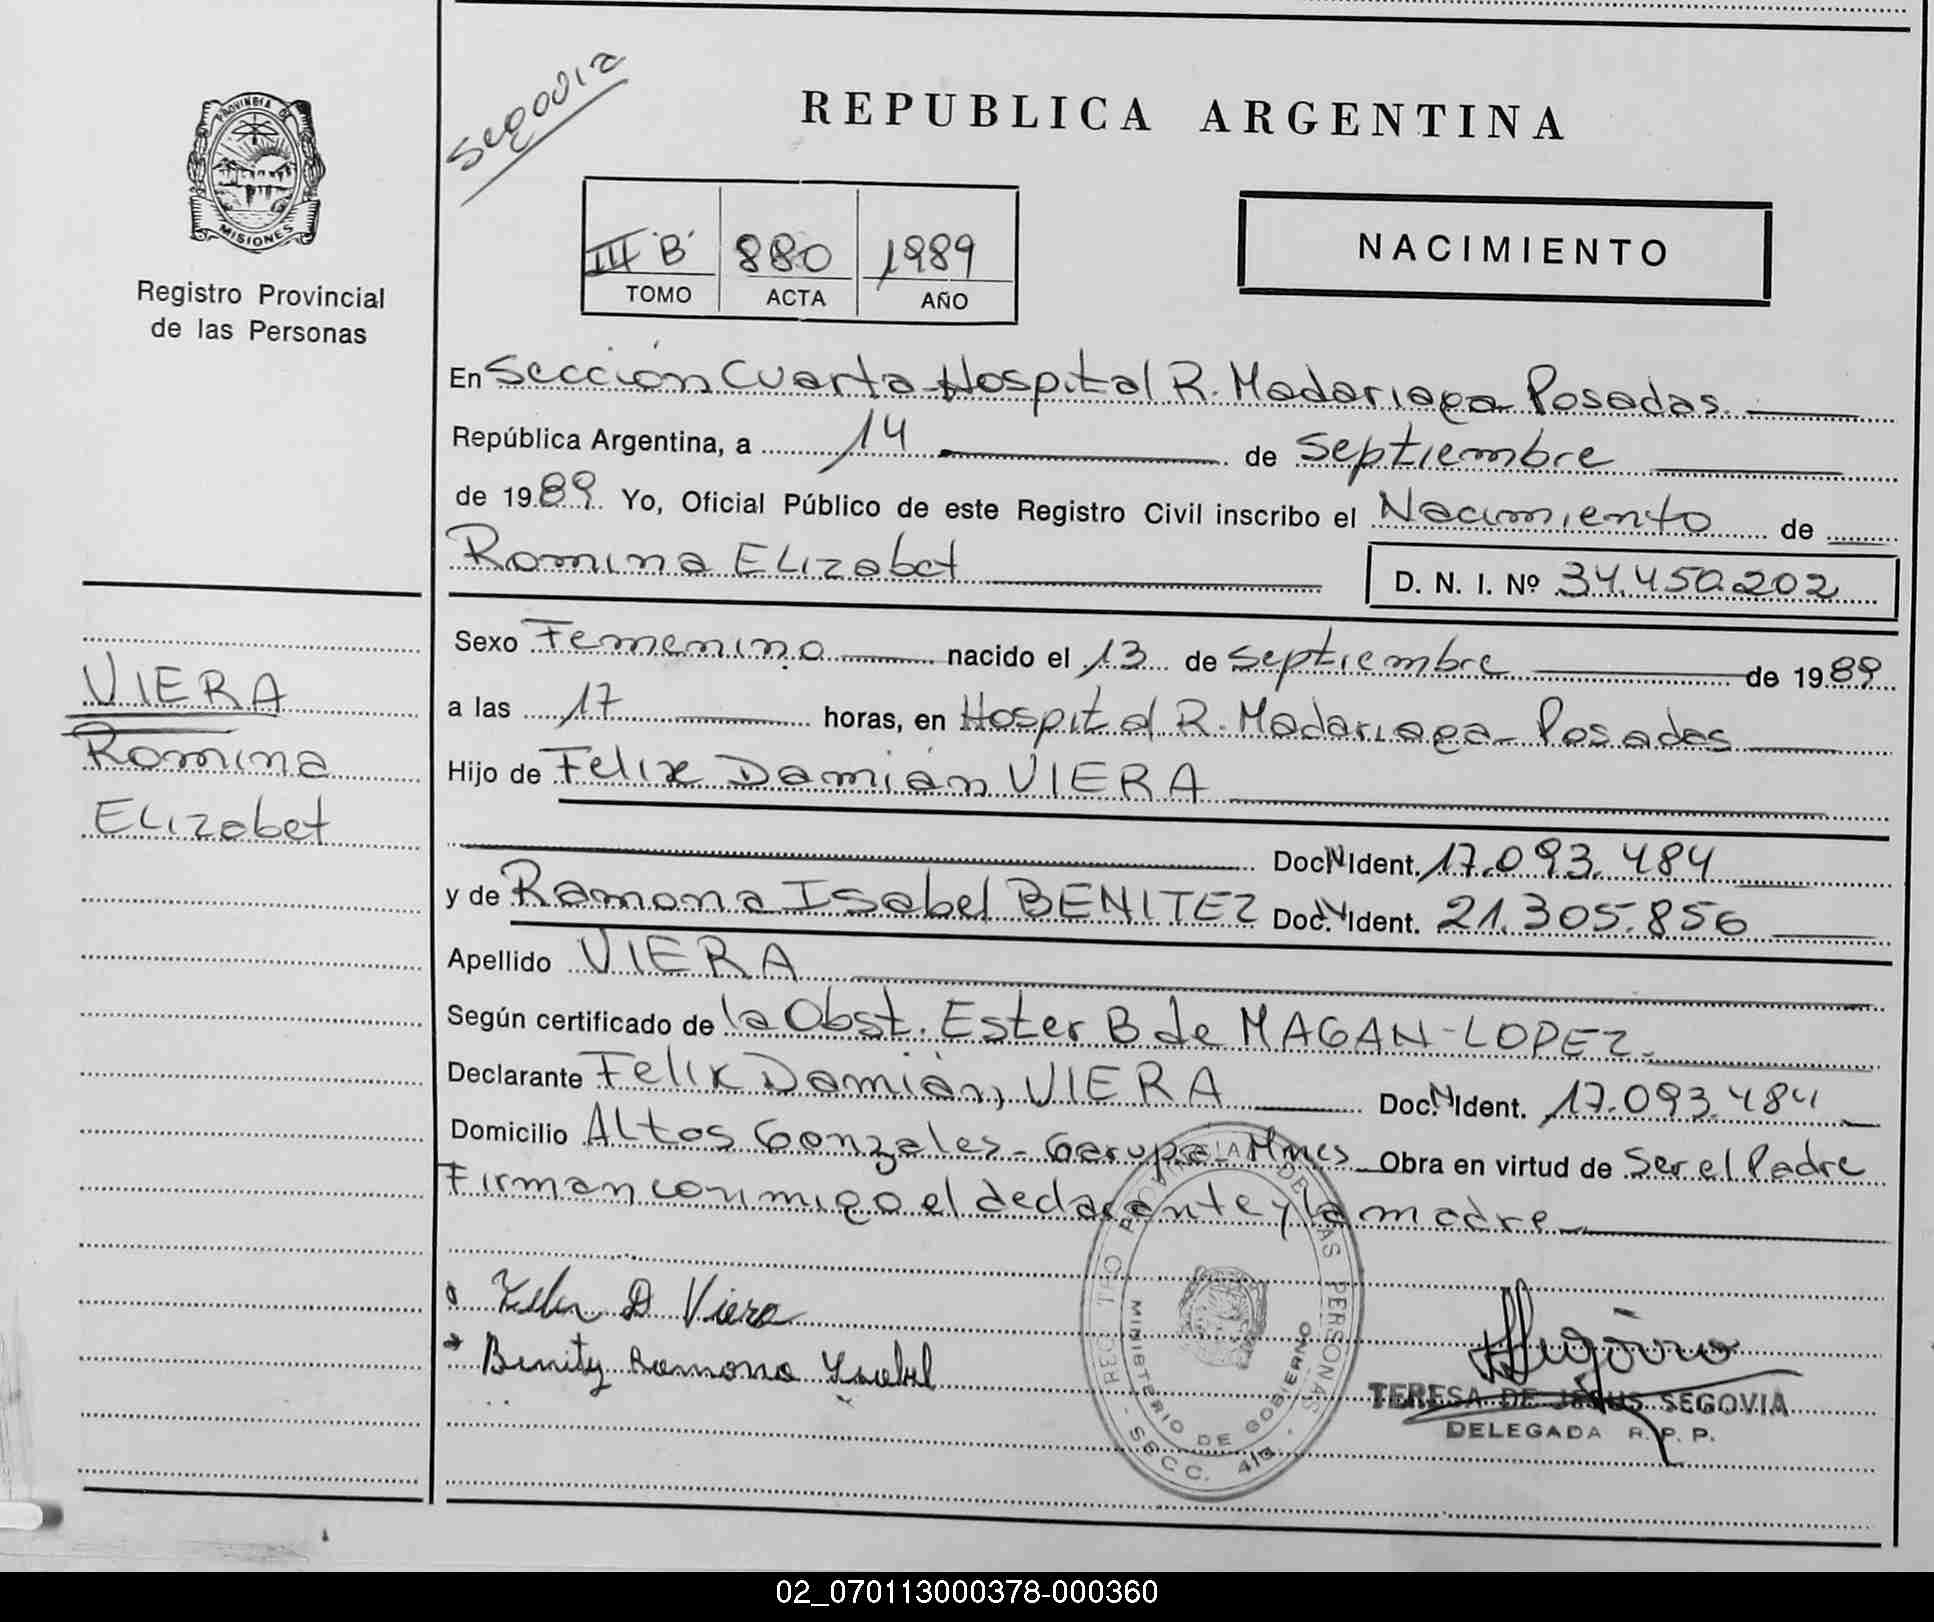 Segovia
REPUBLICA ARGENTINA
PROVINCIA DE
MISIONES
Registro Provincial
de las Personas
III "B" 880 1989
TOMO ACTA AÑO
NACIMIENTO
En Sección Cuarta Hospital R. Madariaga Posadas
República Argentina, a 14 de Septiembre
de 1989 Yo, Oficial Público de este Registro Civil inscribo el Nacimiento de
Romina Elizabet D. N. I. Nº 34.450.202
VIERA
Romina
Elizabet
Sexo Femenino nacido el 13 de Septiembre de 1989
a las 17 horas, en Hospital R. Madariaga - Posadas
Hijo de Felix Damián VIERA
Doc. N Ident. 17.093.484
y de Ramona Isabel BENITEZ Doc. N Ident. 21.305.856
Apellido VIERA
Según certificado de la Obst. Ester B de MAGAN-LOPEZ.
Declarante Felix Damián, VIERA Doc. N Ident. 17.093.484
Domicilio Altos Gonzales - Garupa - Mnes Obra en virtud de Ser el Padre
Firman conmigo el declarante y la madre
Felix D Viera
Benitez Ramona Ysabel
REG. PROVINCIAL DE LAS PERSONAS - SECC. 4ta -
MINISTERIO DE GOBIERNO
Segovia
TERESA DE JESUS SEGOVIA
DELEGADA R. P. P.
02_070113000378-000360